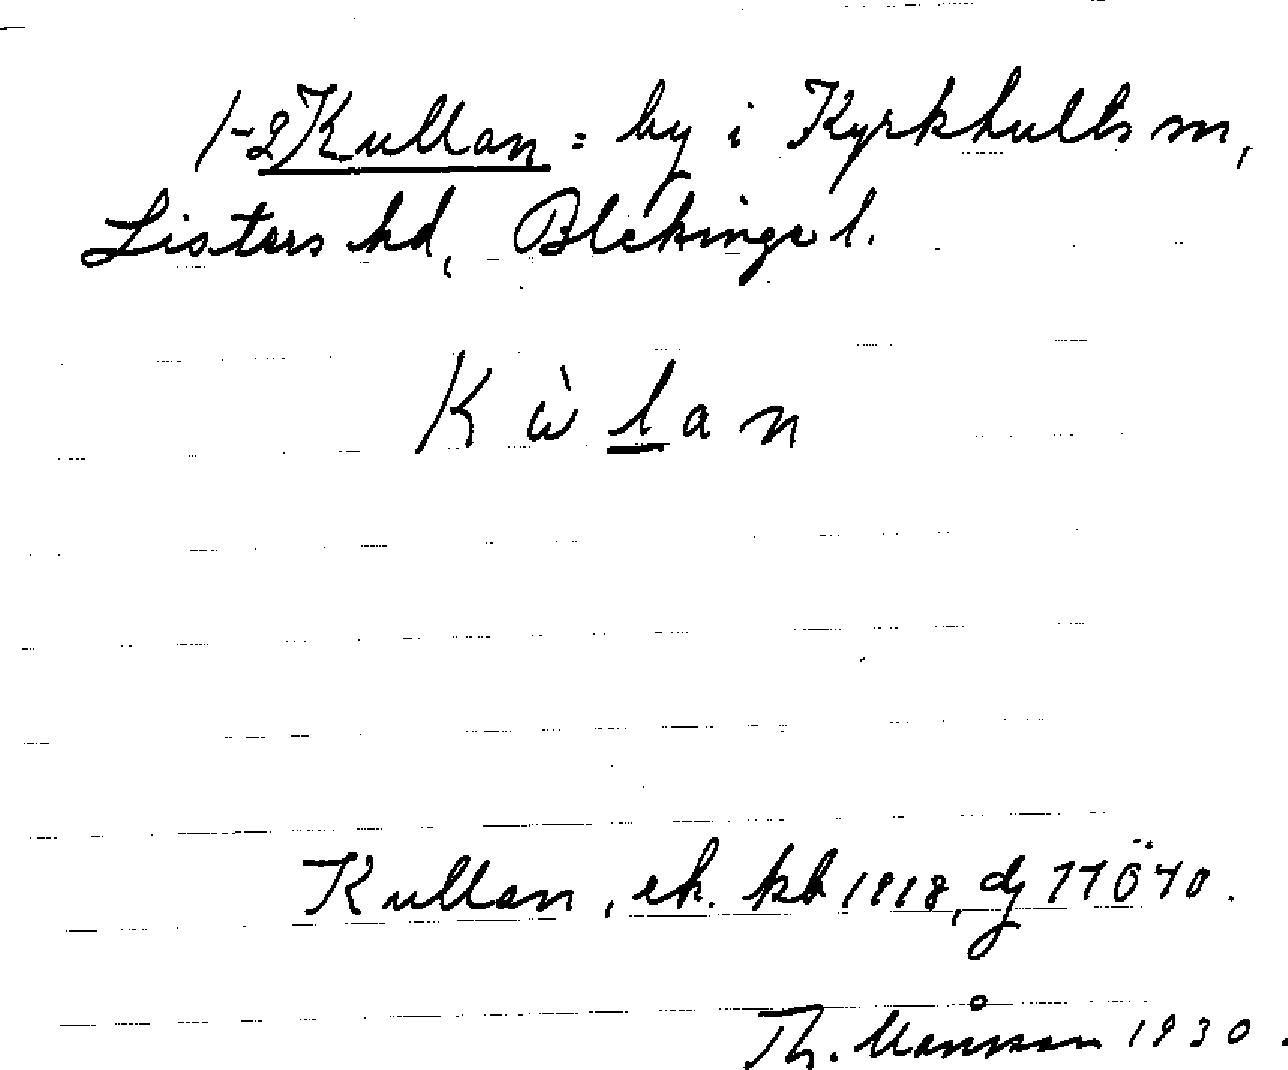 1-2 Kullan = by i Kyrkhults sn,
Listers hd, Blekinge l.
K ù l a n
Kullan, ek. kb 1918, dj 77Ö40.
Th. Månsson 1930.